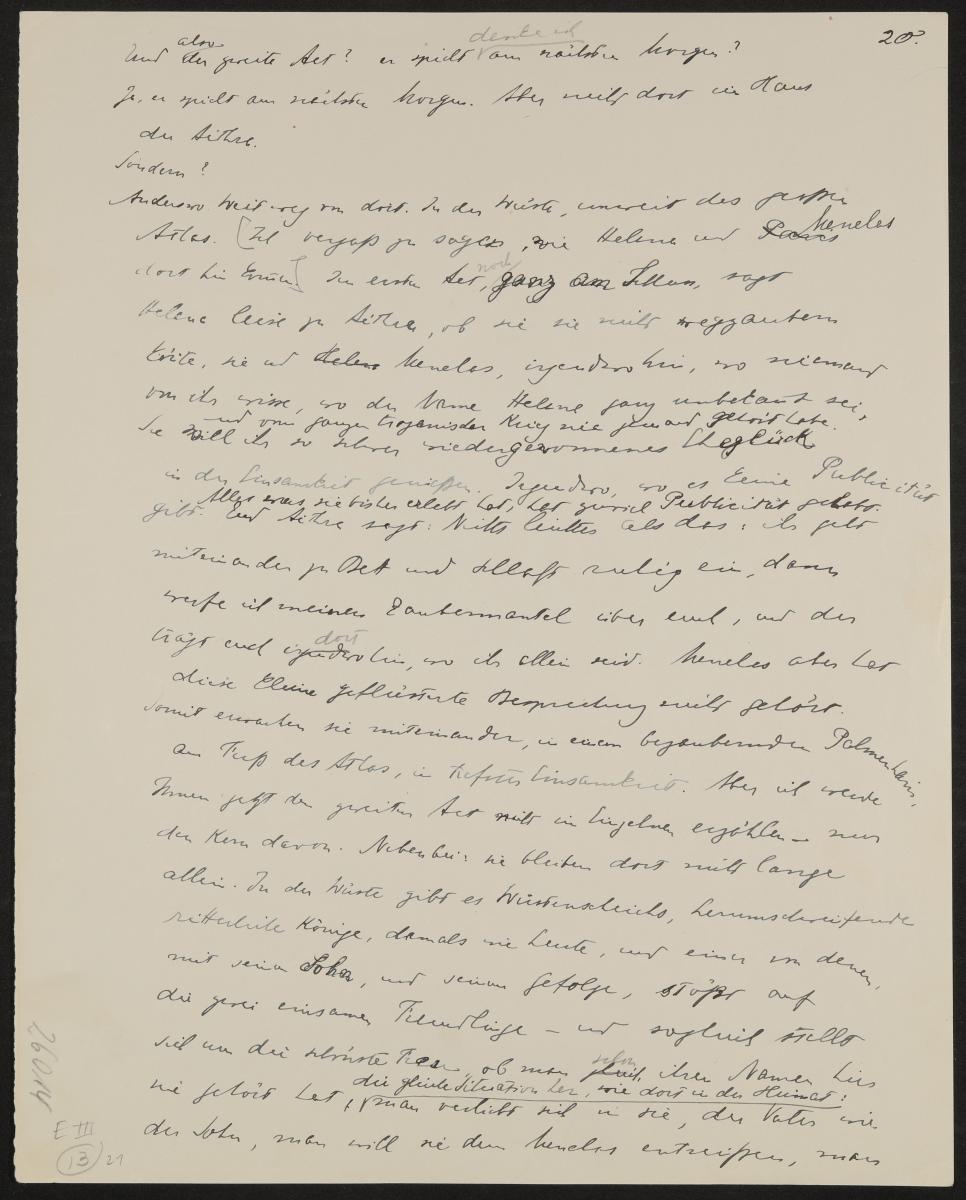 20.
denke ich
also
Und der zweite Act? er spielt am nächsten Morgen?
Ja, er spielt am nächsten Morgen. Aber nicht dort im Haus
der Aithra.
Sondern?
Anderswo. Weit weg von dort. In der Wüste, unweit des großen
Menelas
Atlas. [Ich vergaß zu sagen, wie Helena und Paris
dort hin kommen] Im ersten Act, noch ganz am Schluss, sagt
Helena leise zu Aithra, ob sie sie nicht wegzaubern
könte, sie und Helena Menelas, irgendwo hin, wo niemand
von ihr wisse, wo der Name Helena ganz unbekant sei,
und vom ganzen trojanischen Krieg nie jemand gehört habe.
Sie will ihr so schwer wiedergewonnenes Eheglück
in der Einsamkeit genießen. Irgendwo, wo es keine Publicität
Alles was sie bisher erlebt hat, hat zuviel Publicität gehabt.
gibt. Und Aithra sagt: Nichts leichter als das: ihr geht
miteinander zu Bett und schlaft ruhig ein, dann
werfe ich meinen Zaubermantel über euch, und der
dort
trägt euch irgendwohin, wo ihr allein seid. Menelas aber hat
diese kleine geflüsterte Besprechung nicht gehört.
Somit erwachen sie miteinander, in einem bezaubernden Palmenhain,
am Fuß des Atlas, in tiefster Einsamkeit. Aber ich werde
Ihnen jetzt den zweiten Act nicht im Einzelnen erzählen – nur
den Kern davon. Nebenbei: sie bleiben dort nicht lange
allein. In der Wüste gibt es Wüstenscheichs, herumschweifende
ritterliche Könige, damals wie heute, und einer von denen,
mit seinem Sohn, und seinem Gefolge, stößt auf
die zwei einsamen Fremdlinge – und sogleich stellt
sich um die schönste Frau, ob man schon gleich ihren Namen hier
die gleiche Situation her, wie dort in der Heimat:
nie gehört hat, man verliebt sich in sie, der Vater wie
der Sohn, man will sie dem Menelas entreißen, man
26014
E III
13
21